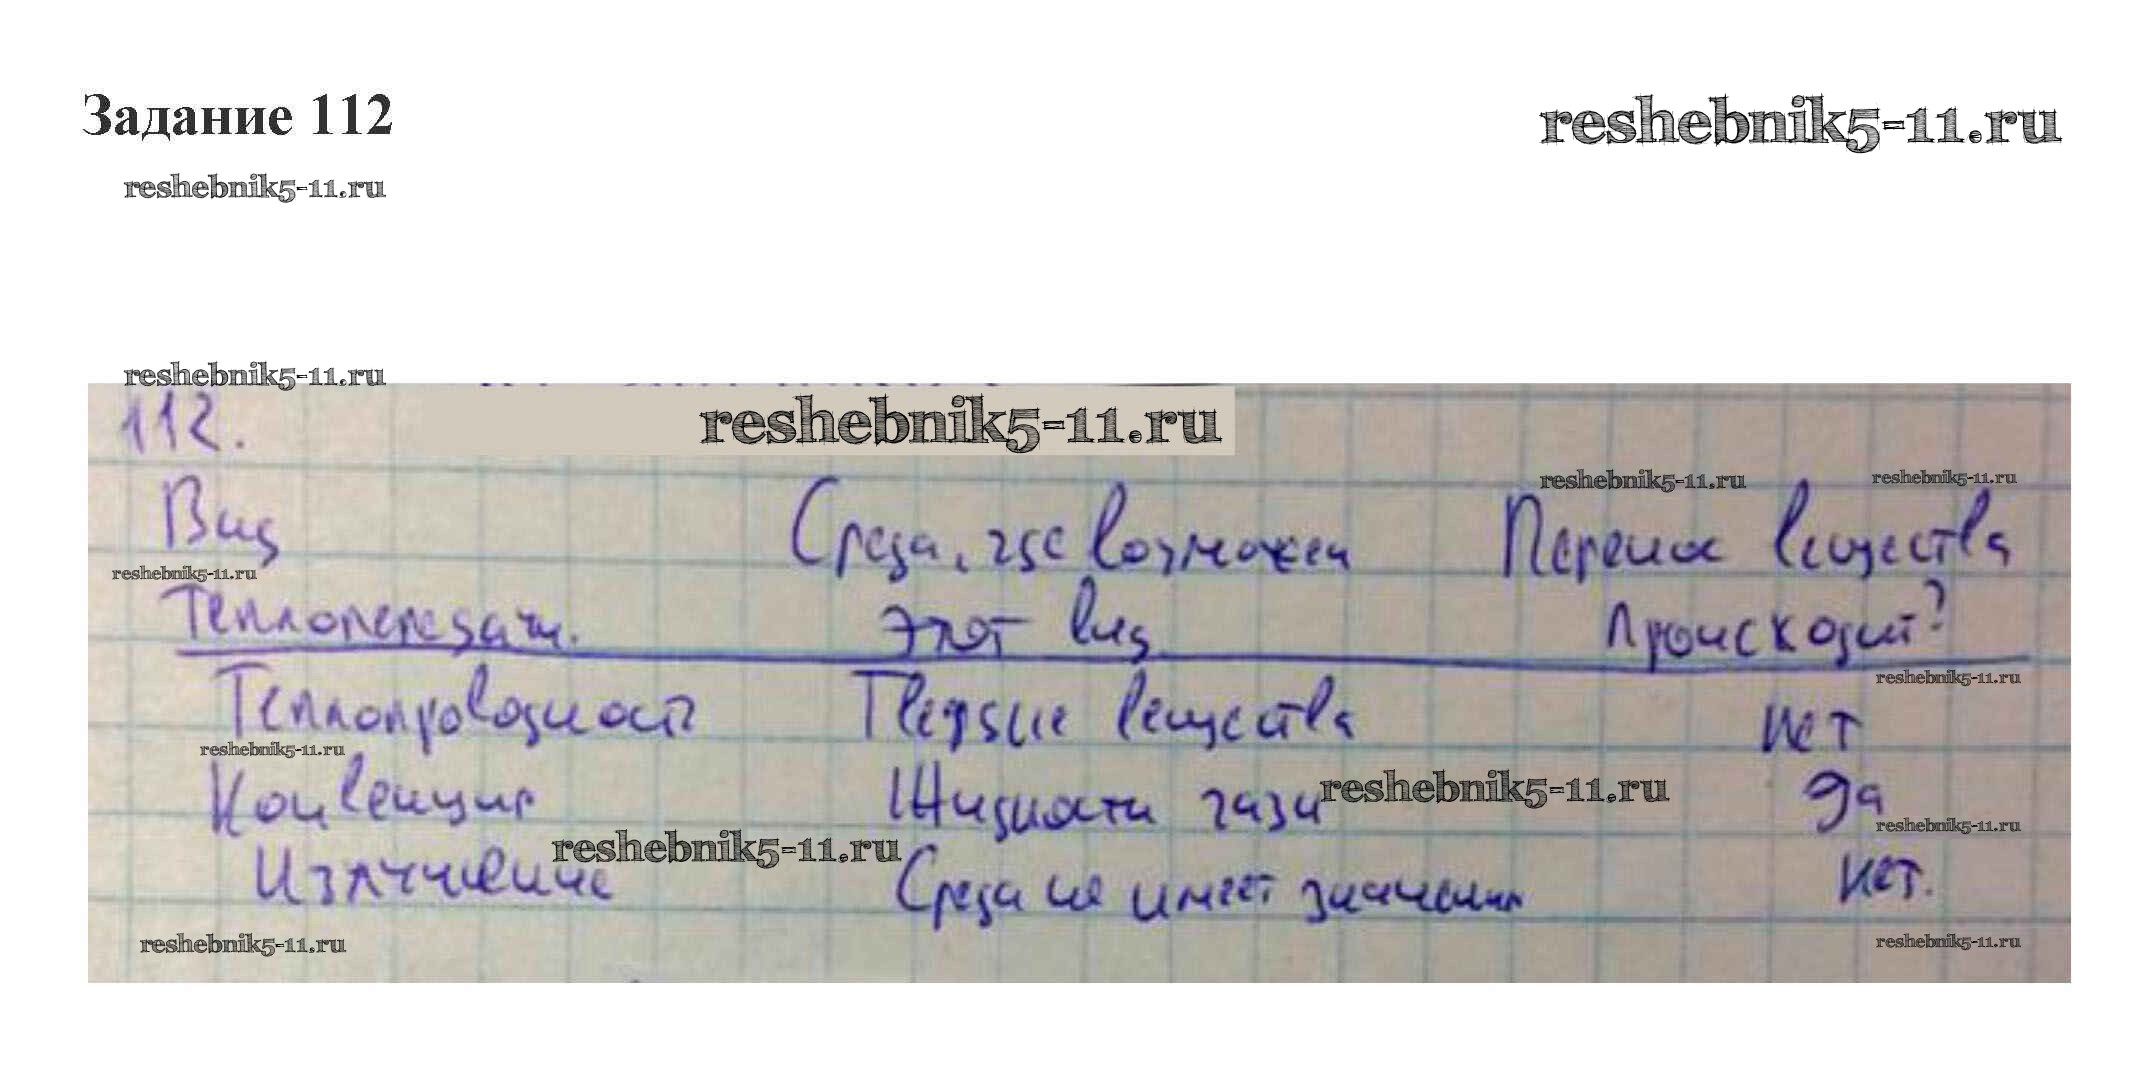 Задание 112
reshebnik5-11.ru
reshebnik5-11.ru
reshebnik5-11.ru
reshebnik5-11.ru
112.
reshebnik5-11.ru
reshebnik5-11.ru
Вид Среда, где возможен Перенос вещества
reshebnik5-11.ru
Теплопередачи. этот вид происходит?
reshebnik5-11.ru
Теплопроводность Твердые вещества нет
reshebnik5-11.ru
Конвекция Жидкости газы да
reshebnik5-11.ru
reshebnik5-11.ru
reshebnik5-11.ru
Излучение Среда не имеет значения нет.
reshebnik5-11.ru
reshebnik5-11.ru